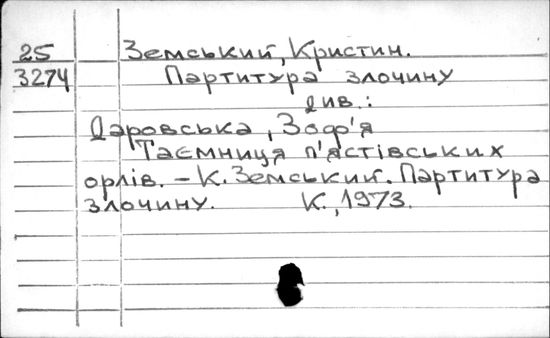 25 Земський, Кристин.
3274 Партитура злочину
див.:
Даровська, Зоф'я
Таємниця п'ястівських
орлів. – К. Земський. Партитура
злочину. К., 1973.